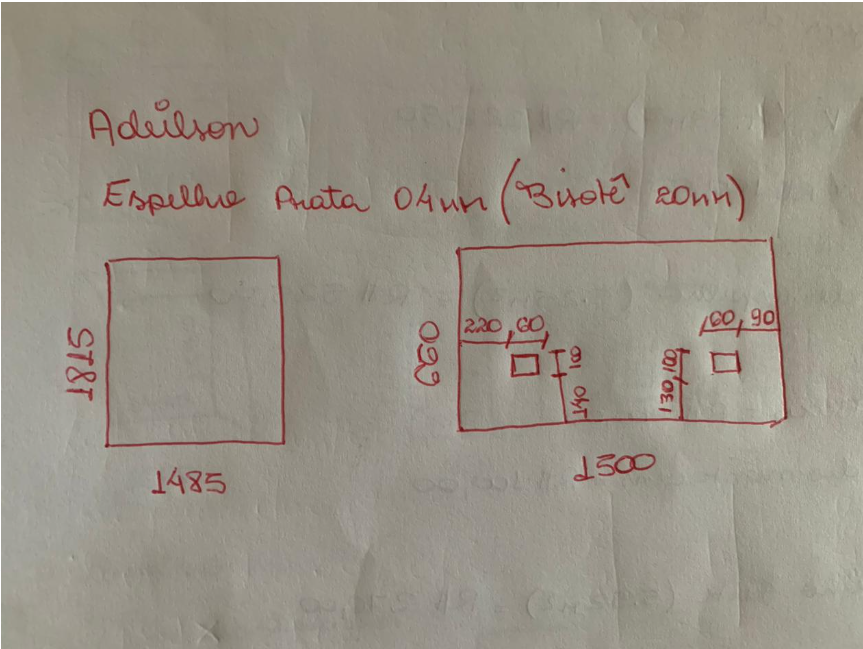 Adeilson
Espelho Prata 04mm (Bisotê 20mm)
1815
1485
660
220 60
60 90
100
140
100
130
1500